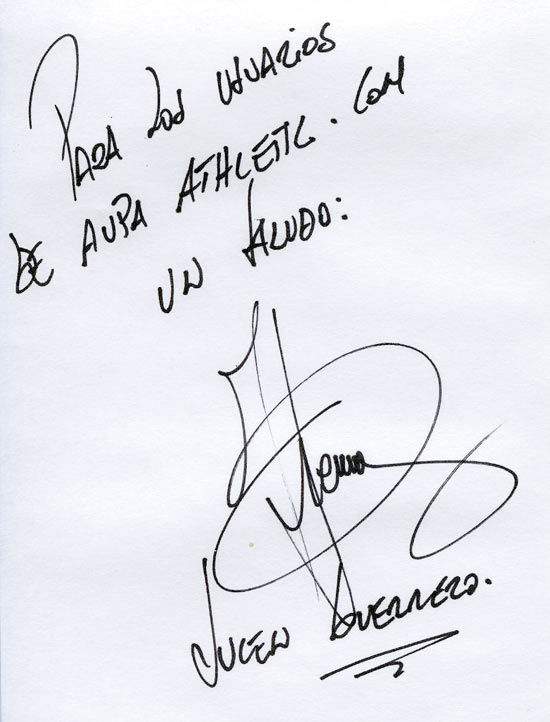 PARA LOS USUARIOS
DE AUPA ATHLETIC.COM
UN SALUDO:
JULEN GUERRERO.